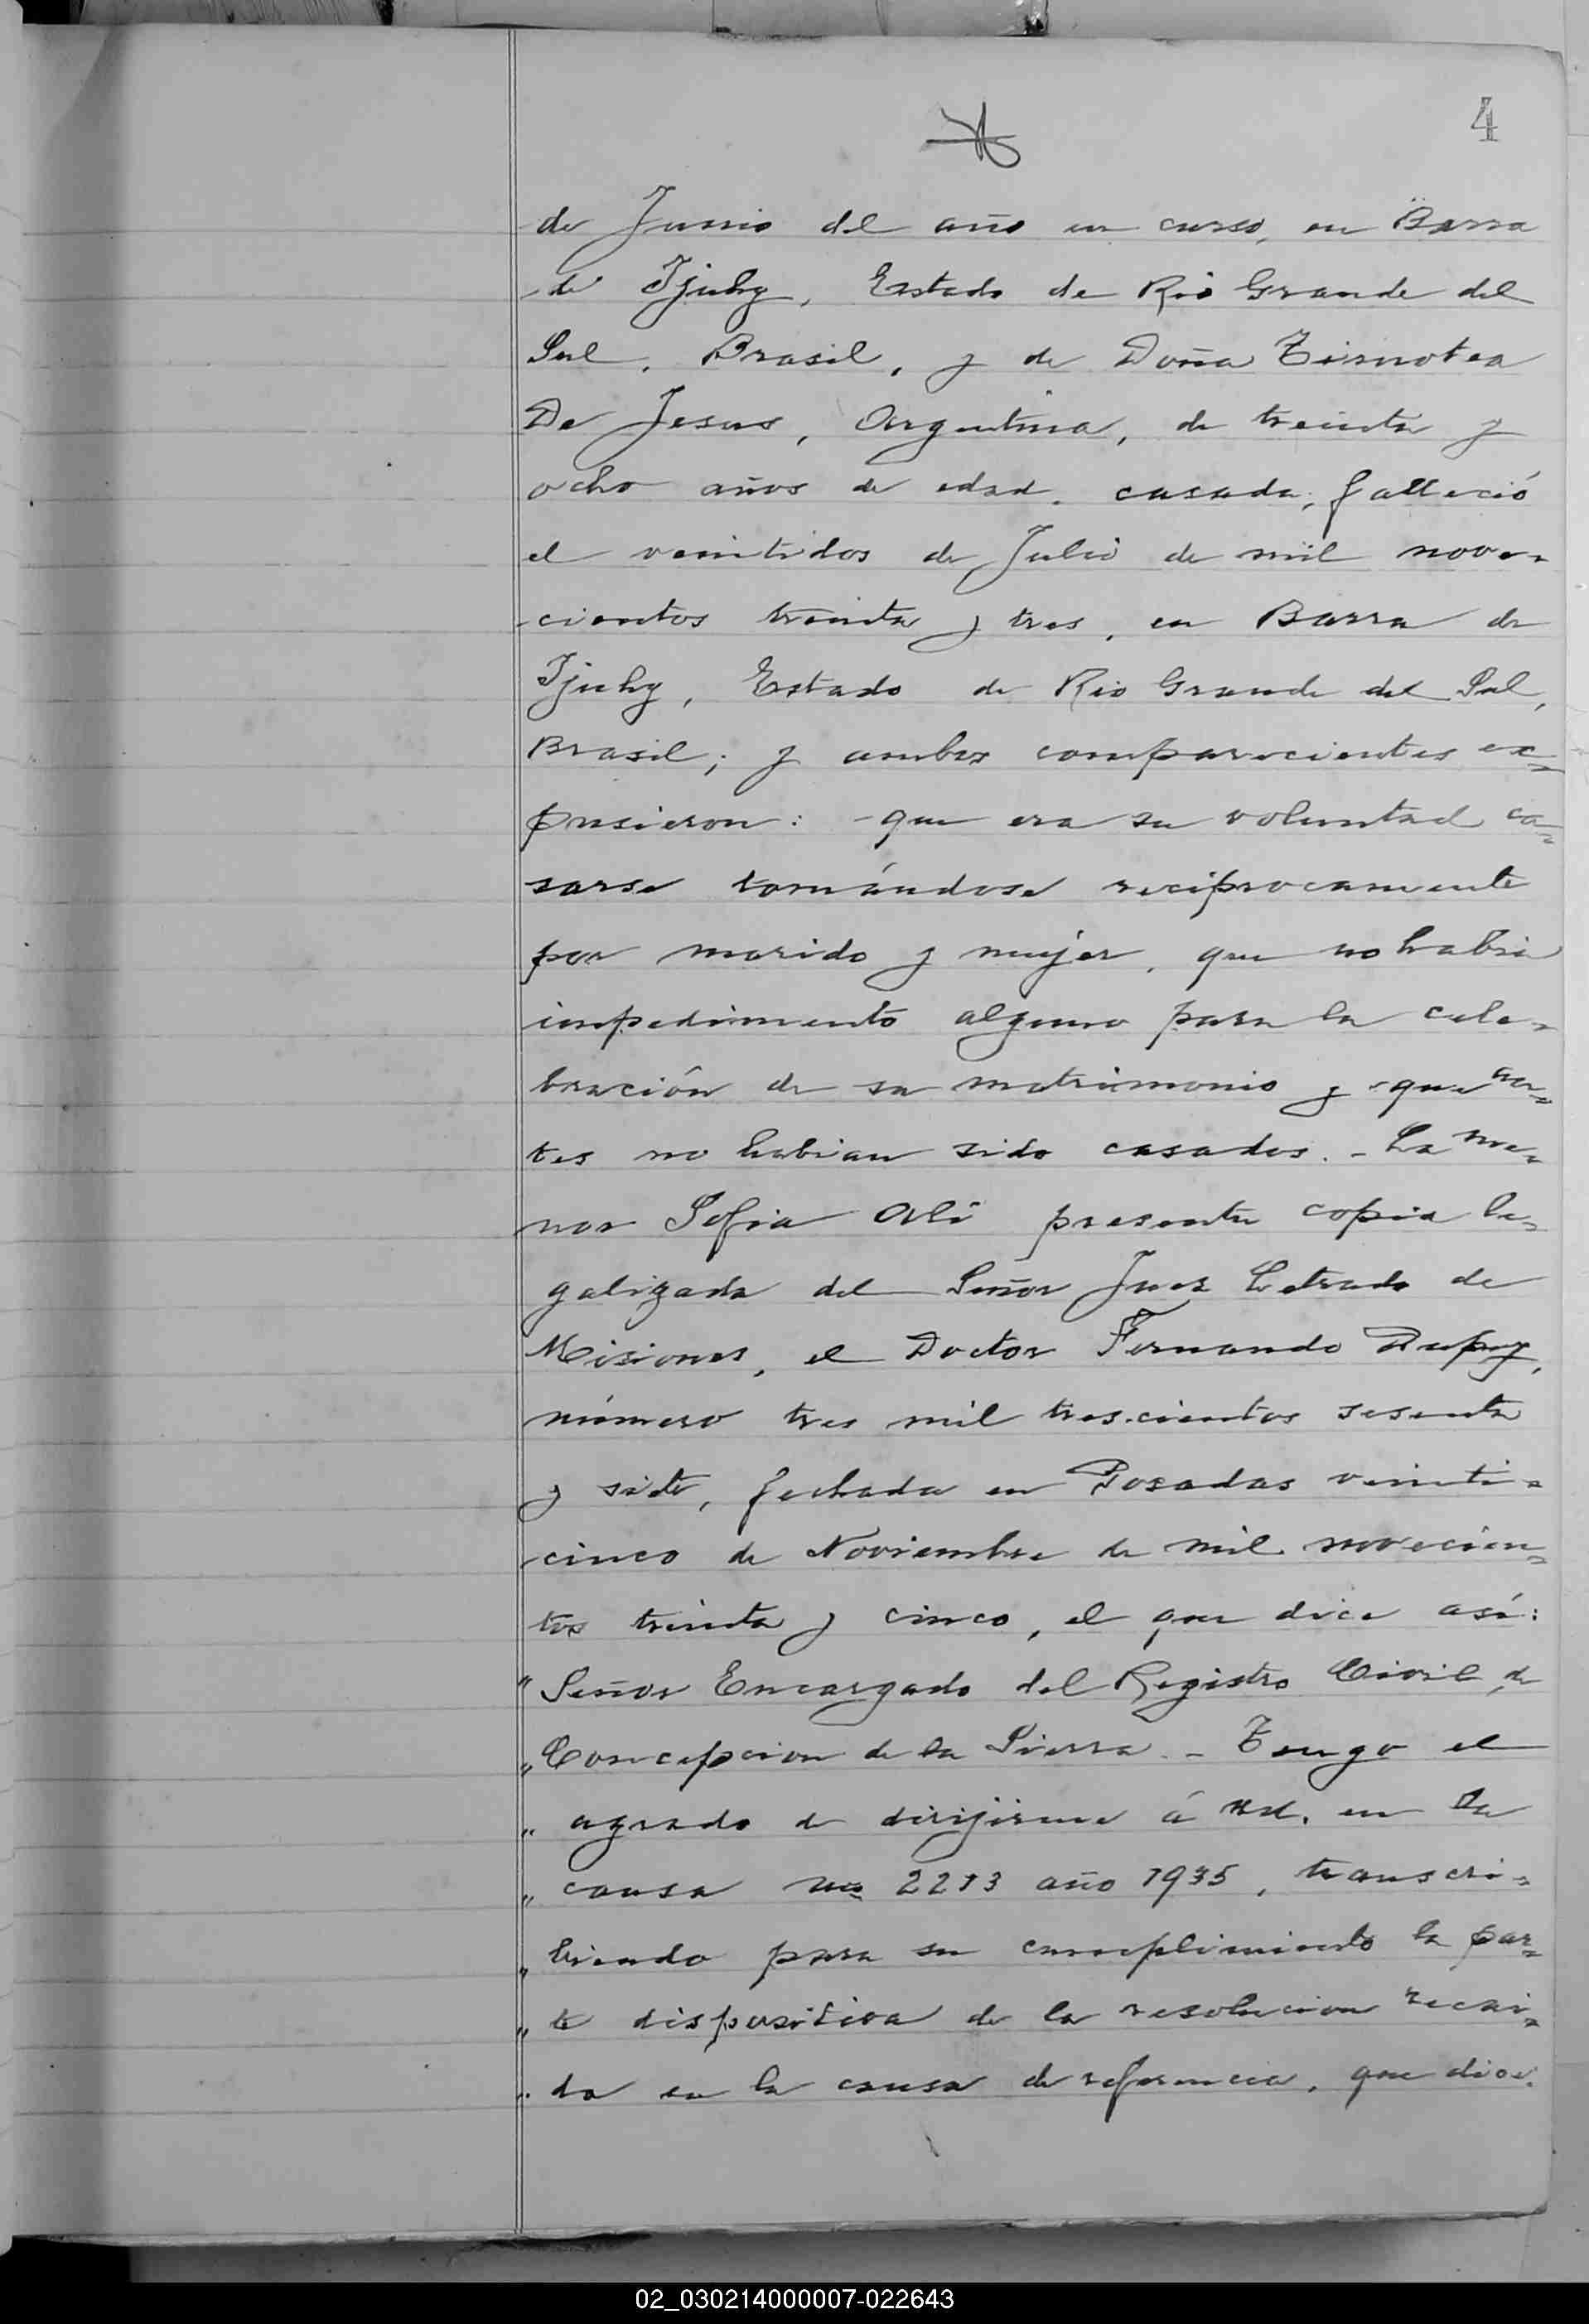 4
de Junio del año en curso, en Barra
de Ijuhy, Estado de Rio Grande del
Sul, Brasil, y de Doña Timotea
De Jesus, Argentina, de treinta y
ocho años de edad, casada, falleció
el veintidos de Julio de mil nove-
cientos treinta y tres, en Barra de
Ijuhy, Estado de Rio Grande del Sul,
Brasil; y ambos comparecientes ex=
pusieron: - que era su voluntad ca=
sarse tomándose reciprocamente
por marido y mujer, que no habia
impedimento alguno para la cele-
bración de su matrimonio y que an=
tes no habian sido casados. - La me=
nor Sofia Ali presenta copia le=
galizada del Señor Juez Letrado de
Misiones, el Doctor Fernando Dupuy,
número tres mil trescientos sesenta
y siete, fechada en Posadas veinti=
cinco de Noviembre de mil novecien=
tos treinta y cinco, el que dice asi:
" Señor Encargado del Registro Civil de
" Concepcion de la Sierra. - Tengo el
" agrado de dirijirme á Ud. en la
" causa no 2213 año 1935, transcri=
" biendo para su cumplimiento la par=
" te dispositiva de la resolucion recai=
" da en la causa de referencia, que dice:
02_030214000007-022643